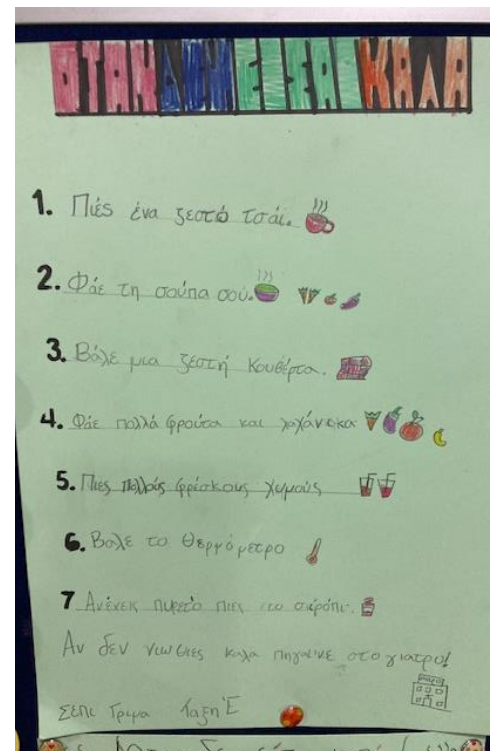 ΟΤΑΝ ΔΕΝ ΕΙΣΑΙ ΚΑΛΑ
1. Πιές ένα ζεστό τσάι.
2. Φάε τη σούπα σού.
3. Βάλε μια ζεστή κουβέρτα.
4. Φάε πολλά φρούτα και λαχάνικα
5. Πιες πολλούς φρέσκους χυμούς
6. Βαλε το θερμόμετρο
7 Αν έχεις πυρετό πιες το σιρόπι.
Αν δεν νιωθιες καλα πηγαίνε στο γιατρο!
Σεπι Γριμα Ταξη Έ